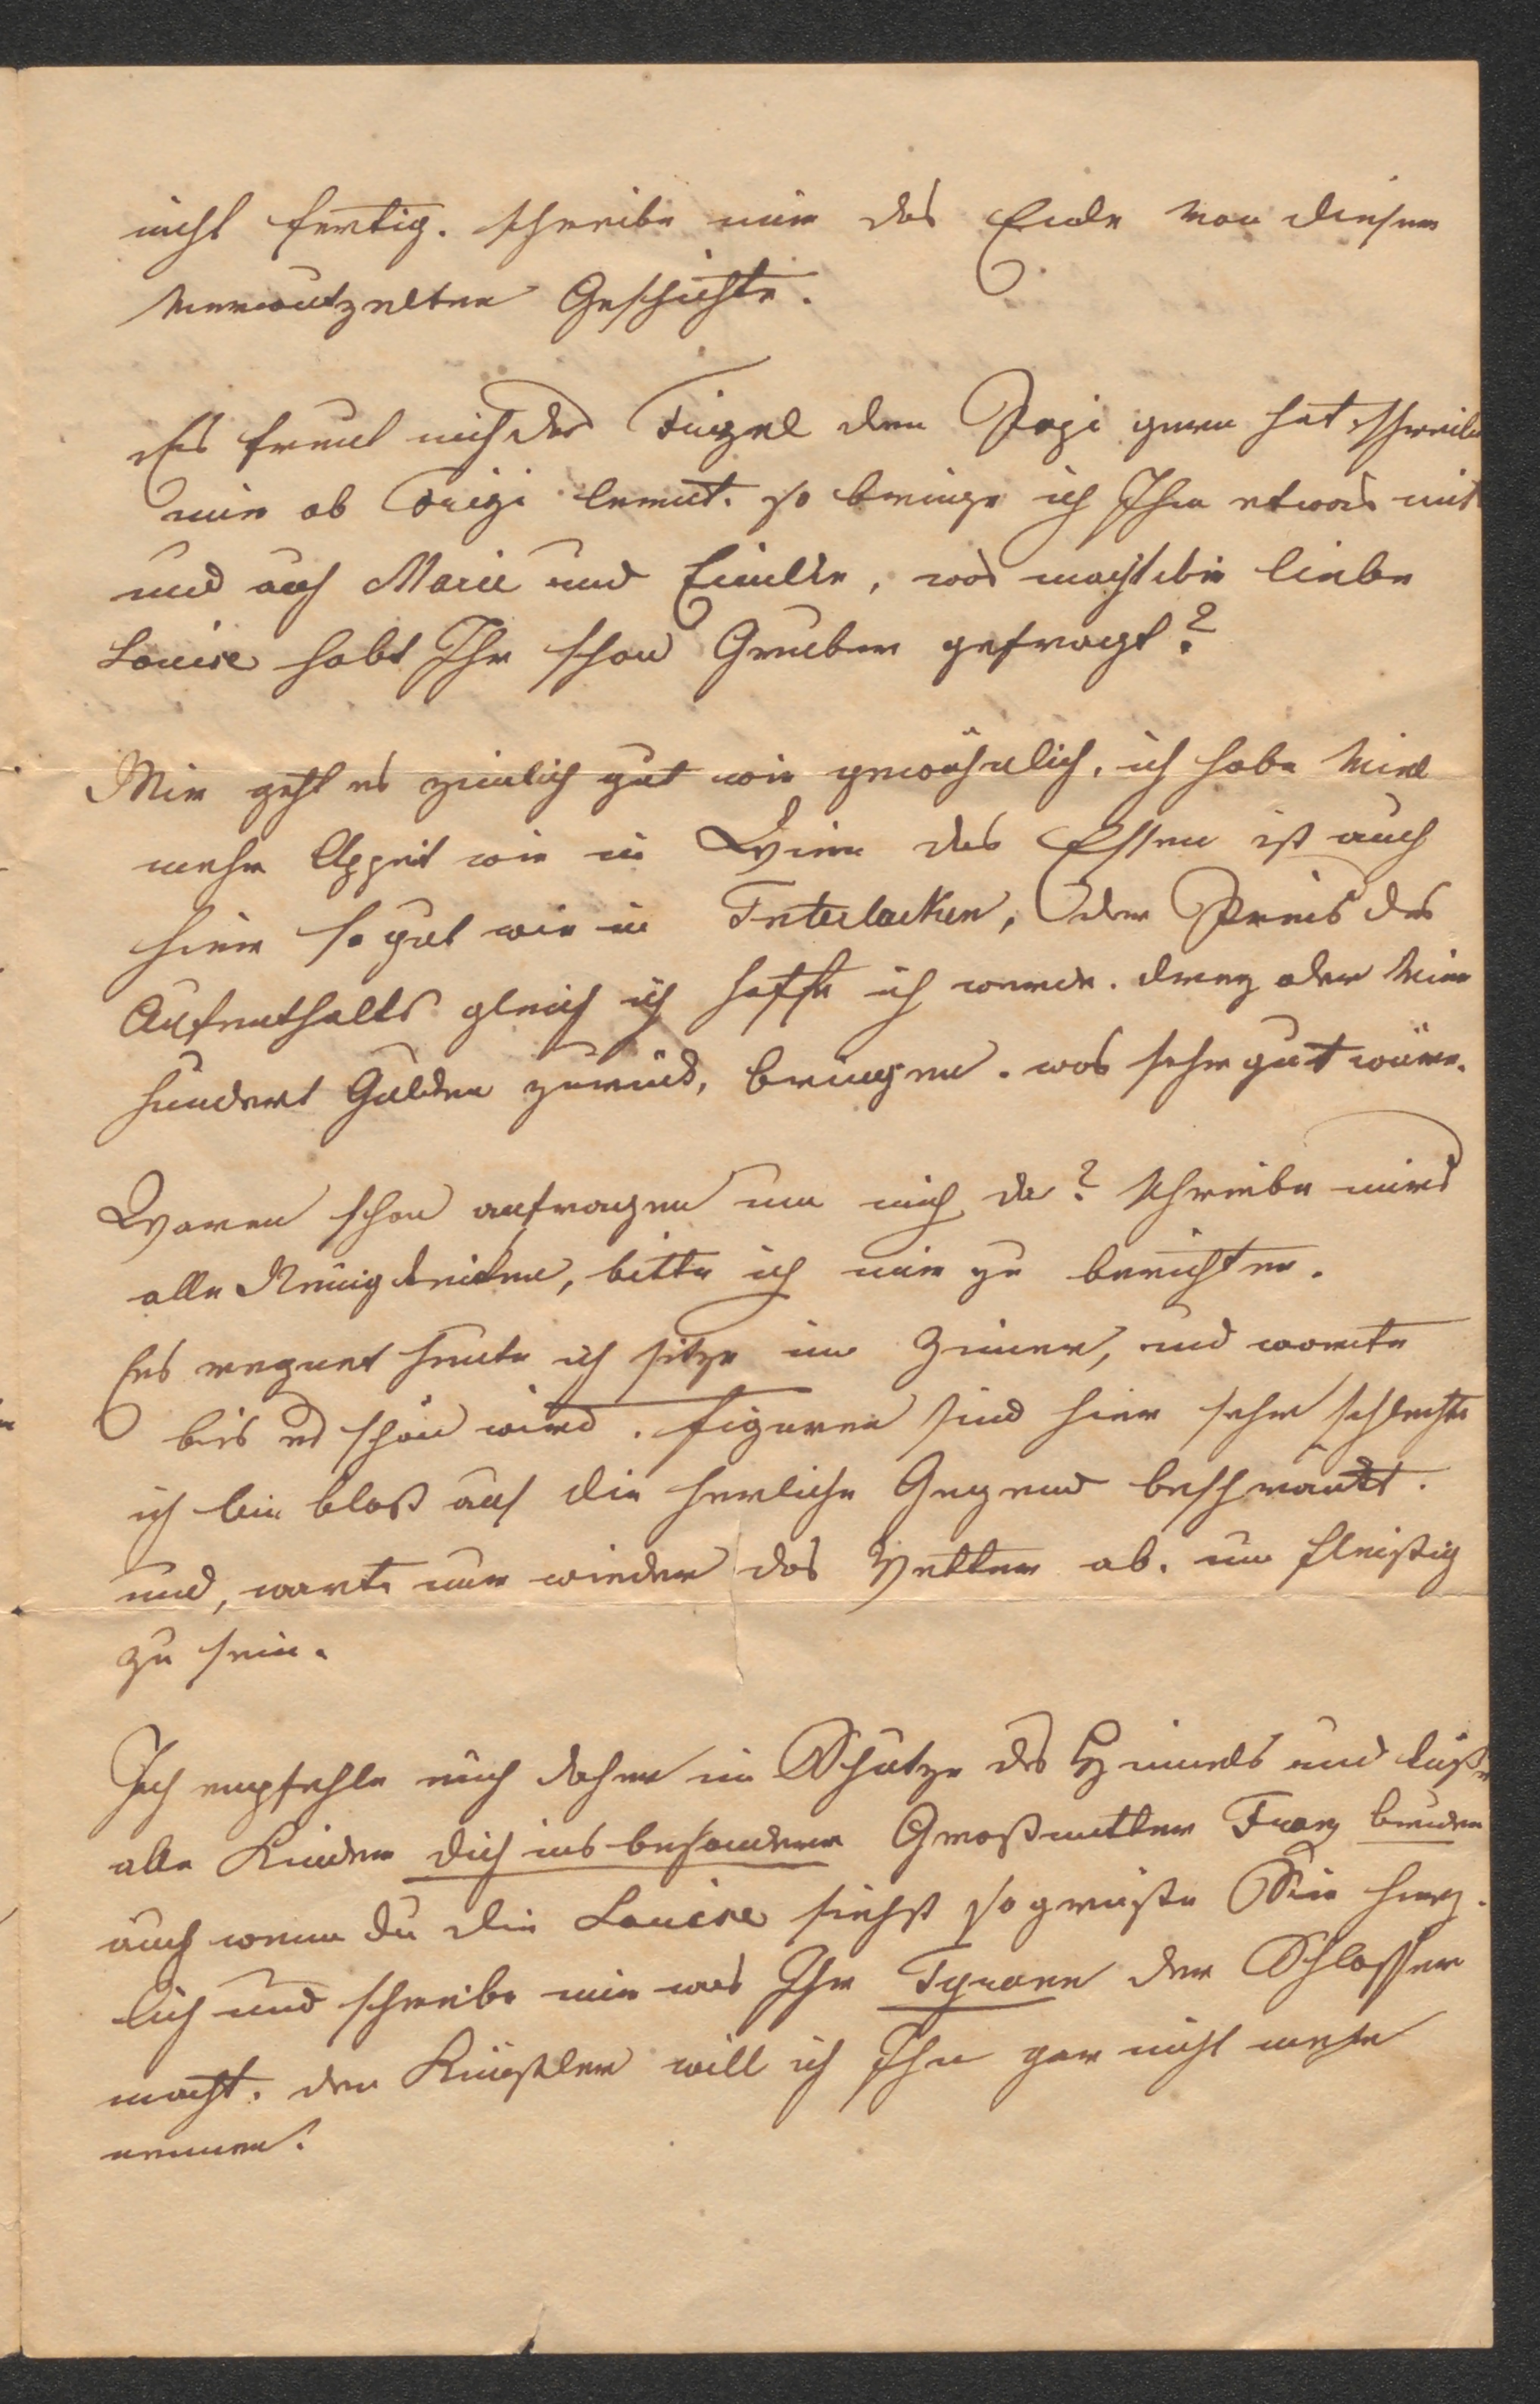 nicht fertig. schreibe mir das Ende von dieser
verwutzelten Geschichte.
Es freut mich das den Papi gern hat, schreibe
mir ob lernt. so bringe ich Ihm etwas mit
und auch Marie und Emilie, was macht die liebe
Louise habt Ihr schon Gruber gefragt?
Mir geht es zimlich gut wie gewöhnlich, ich habe viel
mehr Appeit wie in Wien das Essen ist auch
hier so gut wie in Interlacken, der Preis des
Aufenthalts gleich ich hoffe ich werde. drey oder vier
hundert Gulden zurück, bringen. was sehr gut wäre.
Waren schon anfragen um mich da? schreibe mirs
alle Neuigkeiten, bitte ich mir zu berichten.
Es regnet heute ich sitze im Zimer, und warte
bis es schön wird. Figuren sind hier sehr schlechte
ich bin bloß auf die herliche Gegend beschränkt.
und, warte nur wieder das Wetter ab. um fleißig
zu sein.
Ich empfehle euch daher im Schutze des Himels und küße
alle Kinder dich ins besondere Großmutter Franz beuden
auch wenn du die Louise siehst so grüße Sie herz-
lich und schreibe mir was Ihr Tyrann der Schlosser
macht. den Künstler will ich Ihn gar nicht mehr
nennen.